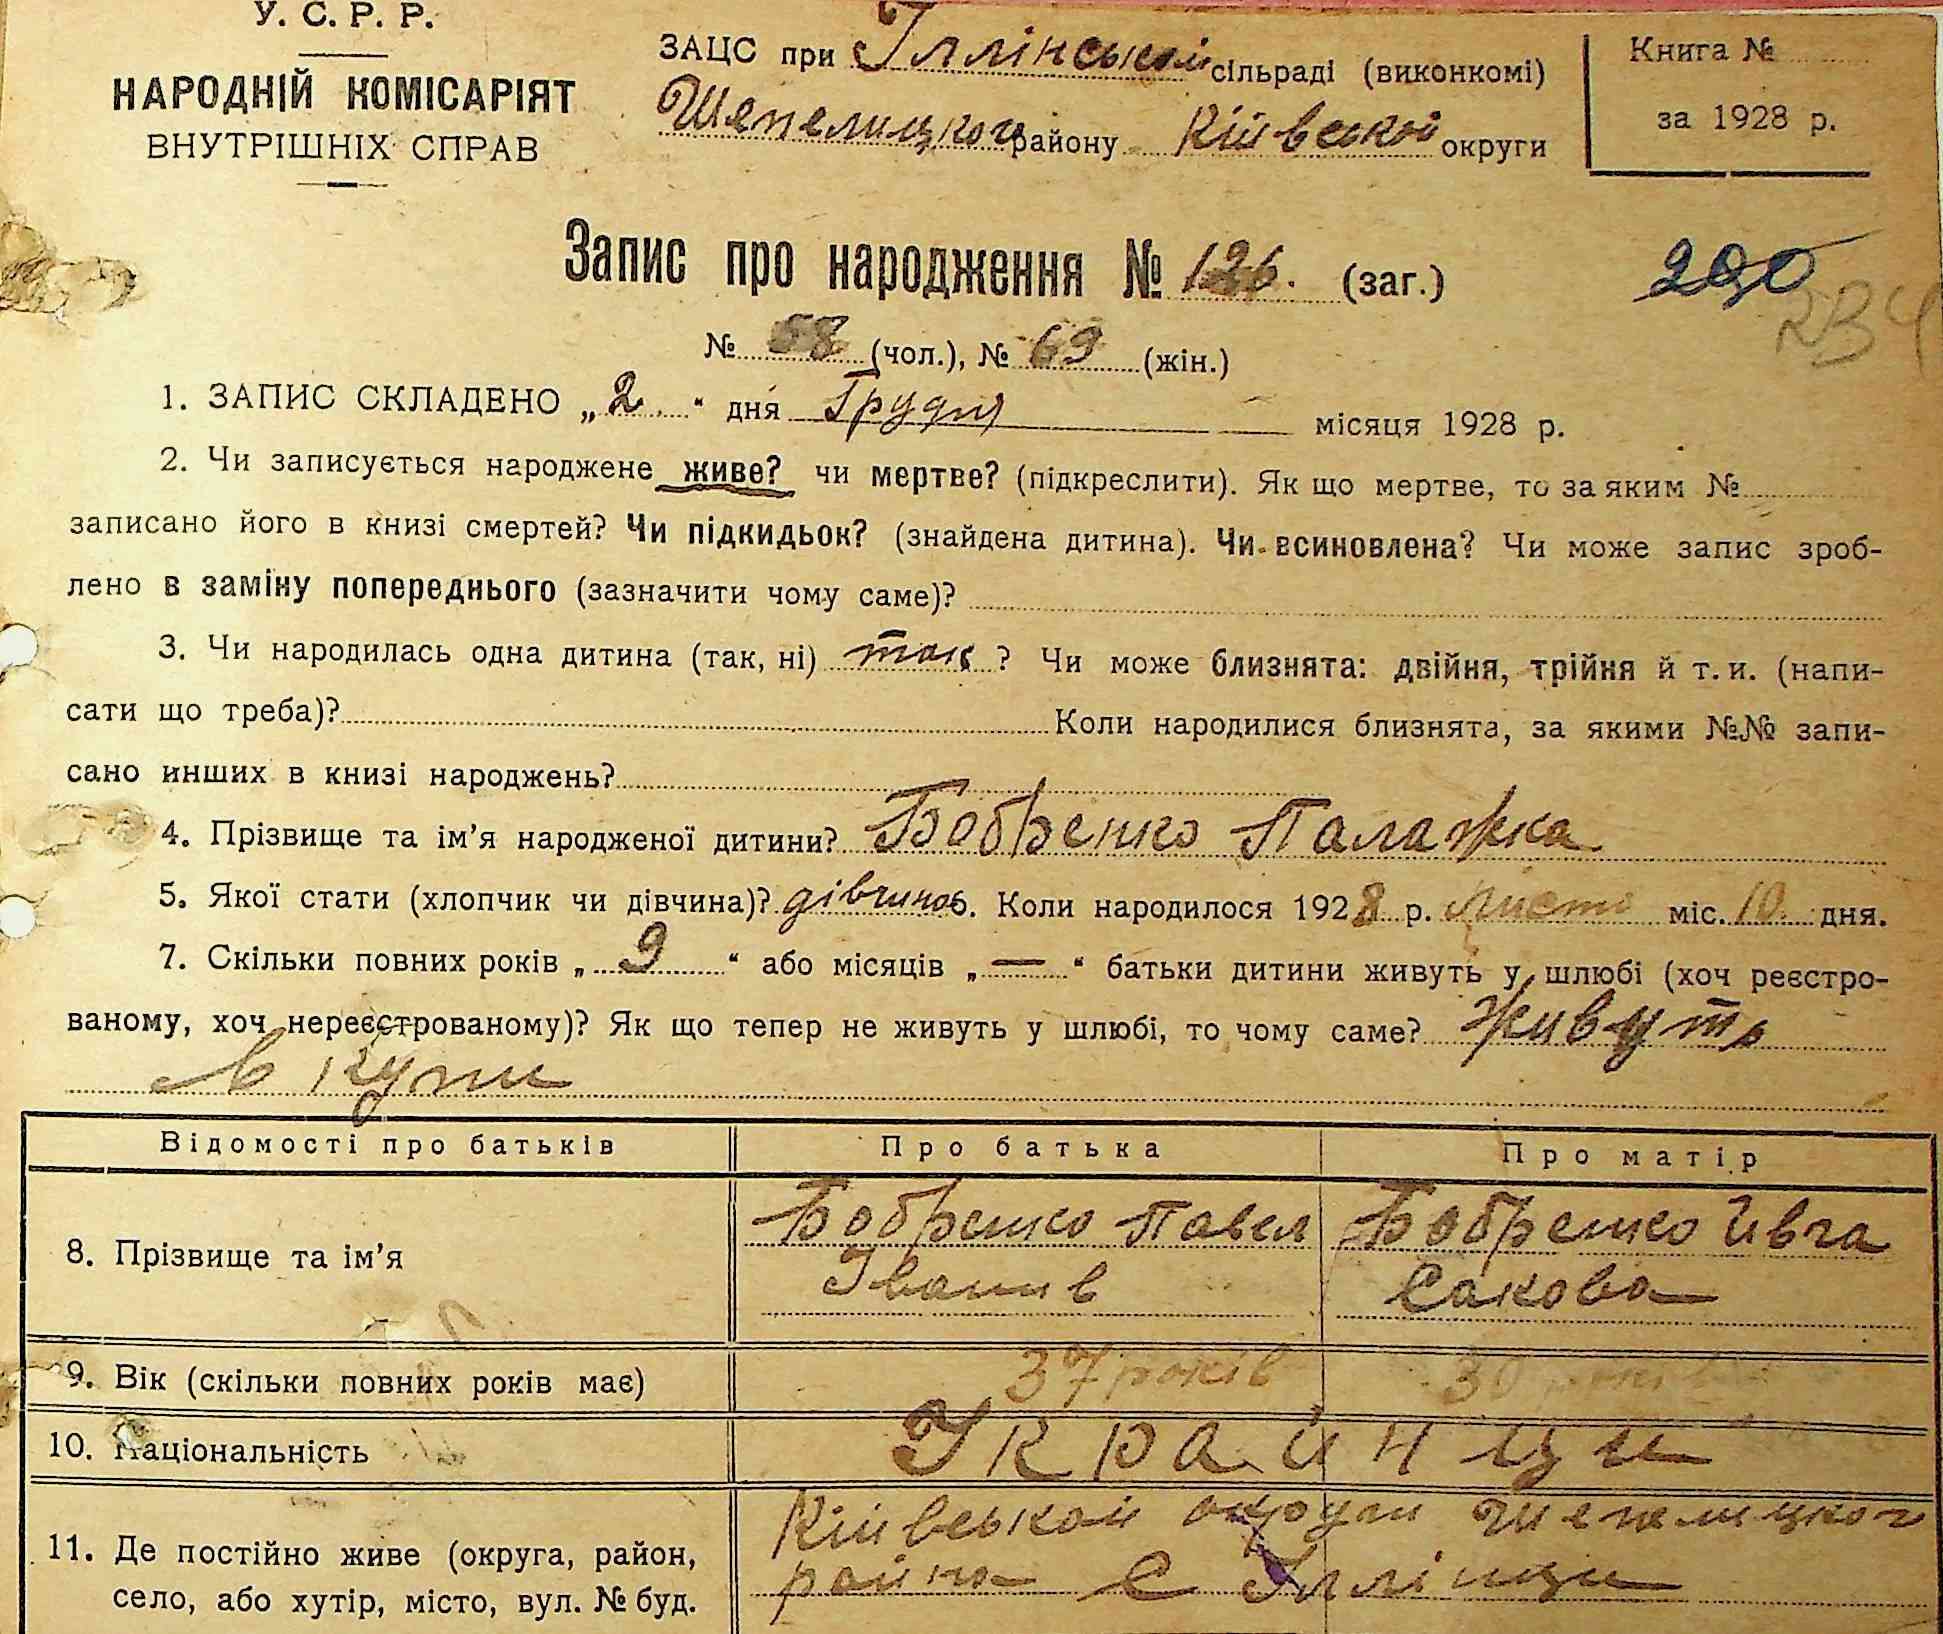 У. С. Р. Р.
НАРОДНІЙ КОМІСАРІЯТ
ВНУТРІШНІХ СПРАВ
ЗАЦС при Іллінськой сільраді (виконкомі)
Шепелицкого району Київськой округи
Книга №
за 1928 р.
Запис про народження № 126. (заг.)
290
234
№ 58 (чол.), № 69 (жін.)
1. ЗАПИС СКЛАДЕНО „2" дня Грудня місяця 1928 р.
2. Чи записується народжене живе? чи мертве? (підкреслити). Як що мертве, то за яким №
записано його в книзі смертей? Чи підкидьок? (знайдена дитина). Чи всиновлена? Чи може запис зроб-
лено в заміну попереднього (зазначити чому саме)?
3. Чи народилась одна дитина (так, ні) так ? Чи може близнята: двійня, трійня й т. и. (напи-
сати що треба)? Коли народилися близнята, за якими №№ запи-
сано инших в книзі народжень?
4. Прізвище та ім'я народженої дитини? Бобренко Палажка
5. Якої стати (хлопчик чи дівчина)? дівчина 6. Коли народилося 1928 р. листо міс. 10 дня.
7. Скільки повних років „ 9 " або місяців „ — " батьки дитини живуть у шлюбі (хоч реєстро-
ваному, хоч нереєстрованому)? Як що тепер не живуть у шлюбі, то чому саме? живуть
в купи
Відомості про батьків Про батька Про матір
8. Прізвище та ім'я Бобренко Павел Бобренко Ивга
Іванив Сакова
9. Вік (скільки повних років має) 37 років 30 років
10. Національність Украинци
11. Де постійно живе (округа, район, Київськой округи Шепелицкого
село, або хутір, місто, вул. № буд. району с Іллінци